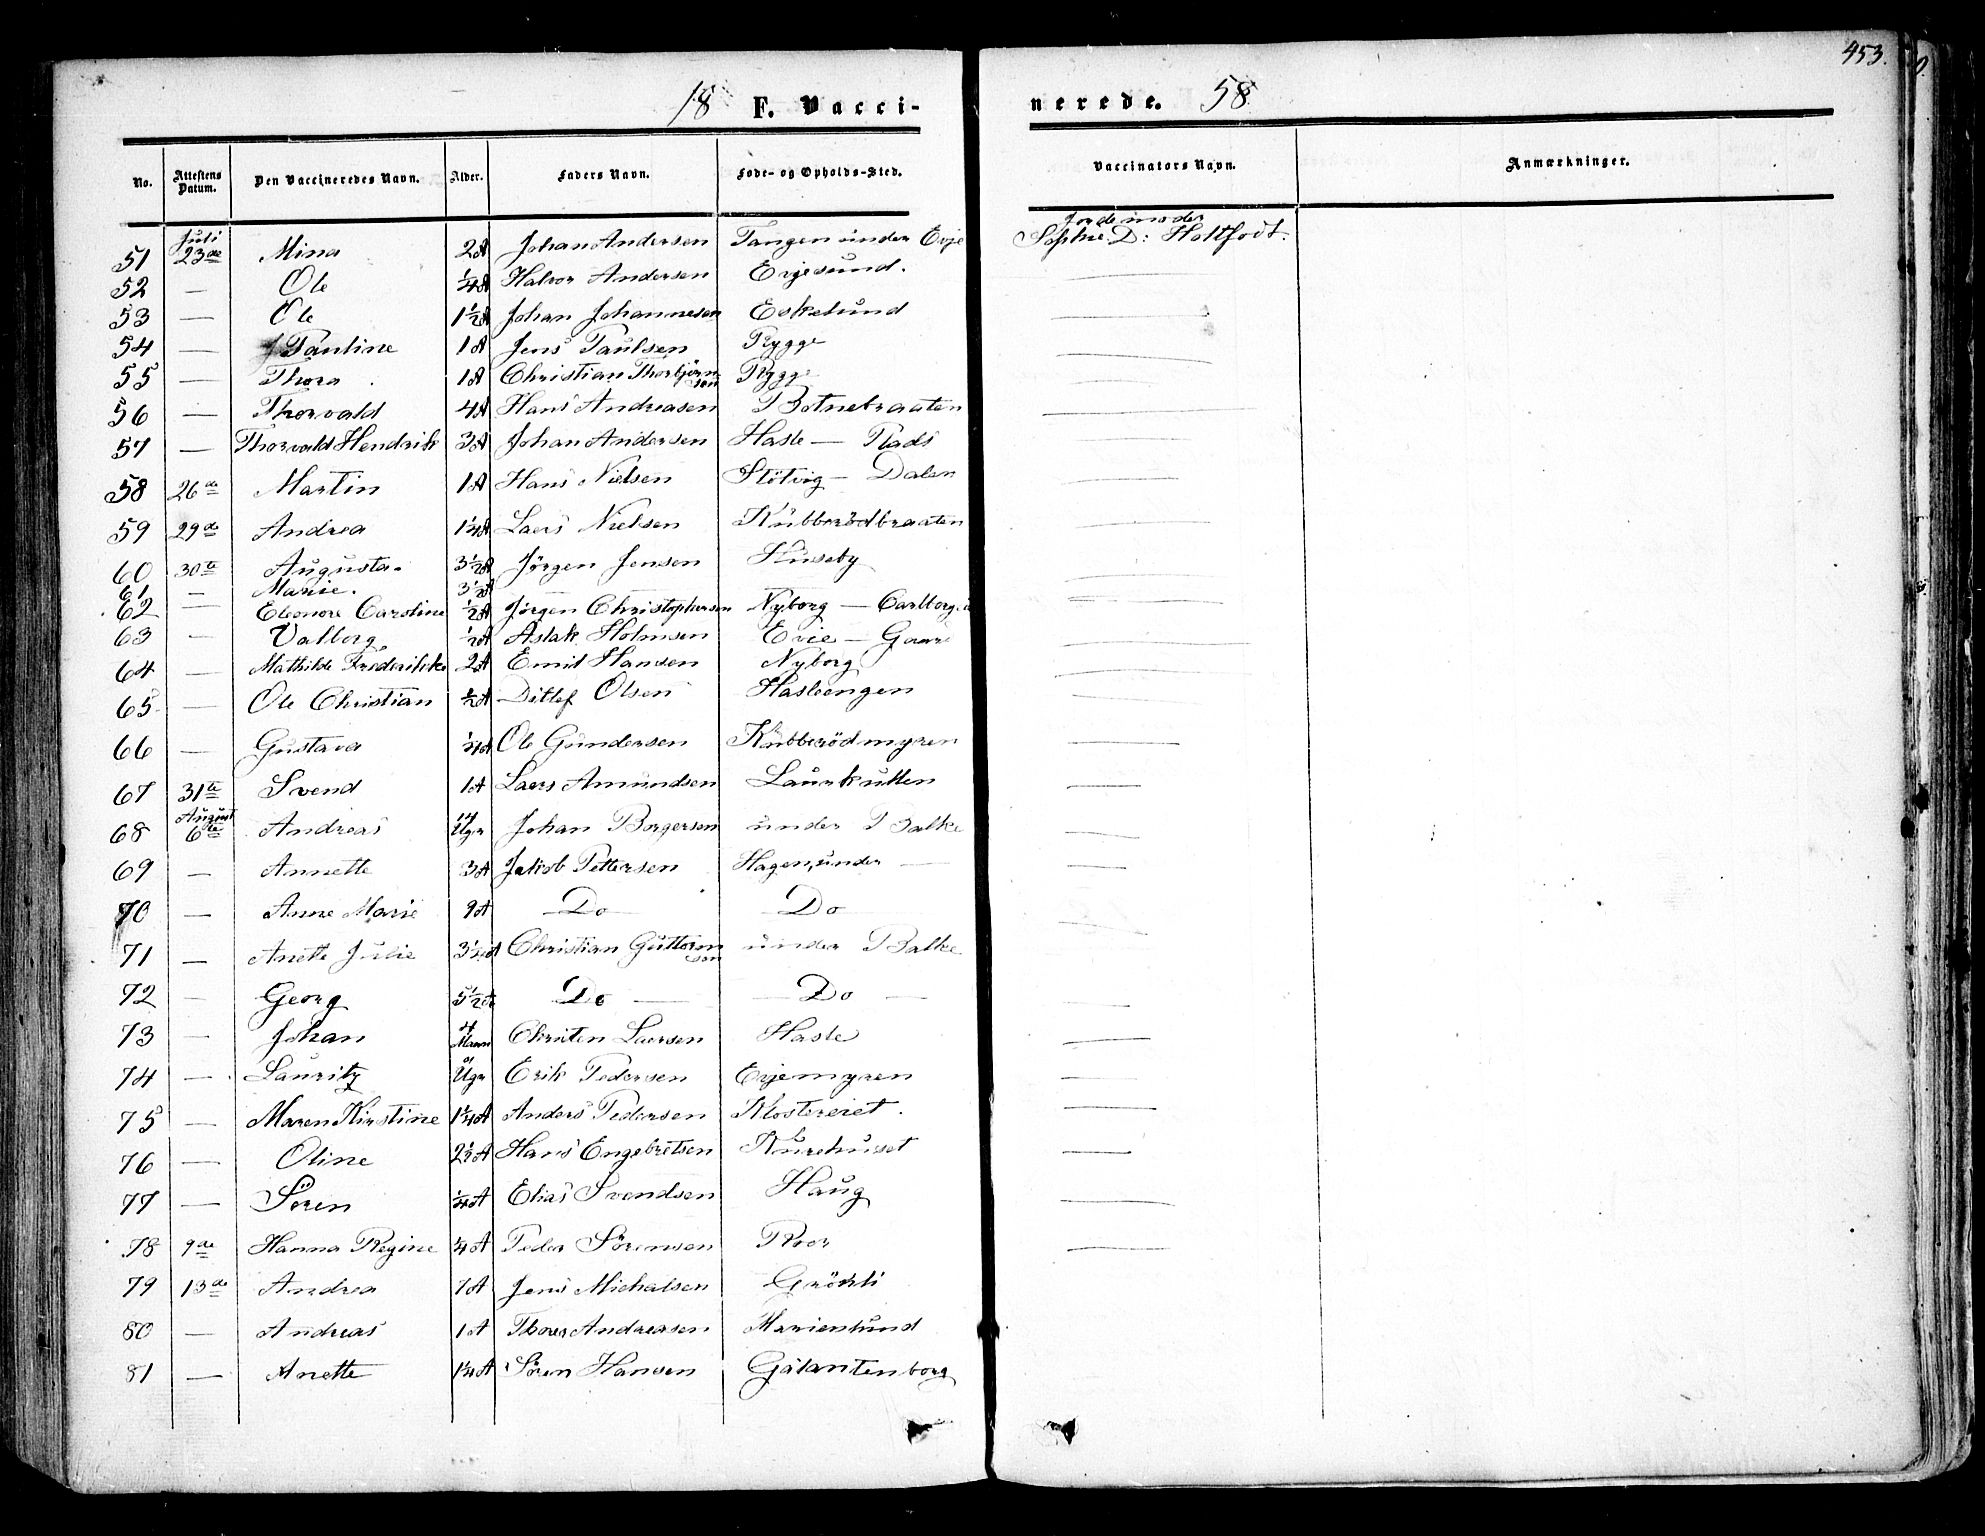 453.
18 F. Vacci- nerede. 58.
No. Attestens Datum. Den Vaccineredes Navn. Alder. Faders Navn. Føde- og Opholds-Sted. Vaccinators Navn. Anmærkninger.
51 Juli 23de Mina 2A Johan Andersen Tangen under Evje Jordemoder Sophie D: Holtfodt.
52 — Ole 1/4A Halvor Andersen Evjesund. —
53 — Ole 1 1/2A Johan Johannesen Eskelund —
54 — Pauline 1A Jens Paulsen Rygge —
55 — Thora 1A Christian Thorbjörnsen Rygge —
56 — Thorvald 4A Hans Andreasen Botnebraaten —
57 — Thorvald Hendrik 3A Johan Andersen Hasle — Plads
58 26de Martin 1A Hans Nielsen Stötvig — Dalen —
59 29de Andrea 1 1/4A Laers Nielsen Kübberödbraaten —
60 30te Augusta. 3 1/2A Jörgen Jensen Huseby —
61 — Marie. 3 1/2A — —
62 — Eleonore Caroline 1/2A Jörgen Christophersen Nyborg — Carlborg —
63 — Valborg 1/2A Aslak Holmsen Evie — Gaard —
64 — Mathilde Frederikke 2A Emil Hansen Nyborg —
65 — Ole Christian 1/2A Ditlef Olsen Hasleengen —
66 — Gustava 1/4A Ole Gundersen Kübberödmyren —
67 31te Svend 1A Laers Amundsen Laurkullen —
68 August 6te Andreas 14 Ugr Johan Borgersen under Balke —
69 — Annette 3A Jakob Pettersen Hagen, under — —
70 — Anne Marie 9A — Do — — Do — —
71 — Anette Julie 3 1/2A Christian Guttormsen under Balke —
72 — Georg 5 1/2A Do — — Do — —
73 — Johan 4 Maan Christen Laersen Hasle —
74 — Lauritz Ugr Erik Pedersen Evjemyren —
75 — Maren Kirstine 1 1/4A Anders Pedersen Klostereiet. —
76 — Oline 2 1/2A Hans Engebretsen Kurehuset —
77 — Sören 1/4A Elias Svendsen Haug —
78 9de Hanna Regine 1/4A Peder Sörensen Roer —
79 13de Andrea 7A Jens Michalsen Grökli
80 — Andreas 1A Thorer Andreasen Marienlund
81 — Anette 1 1/4A Sören Hansen Galantenborg